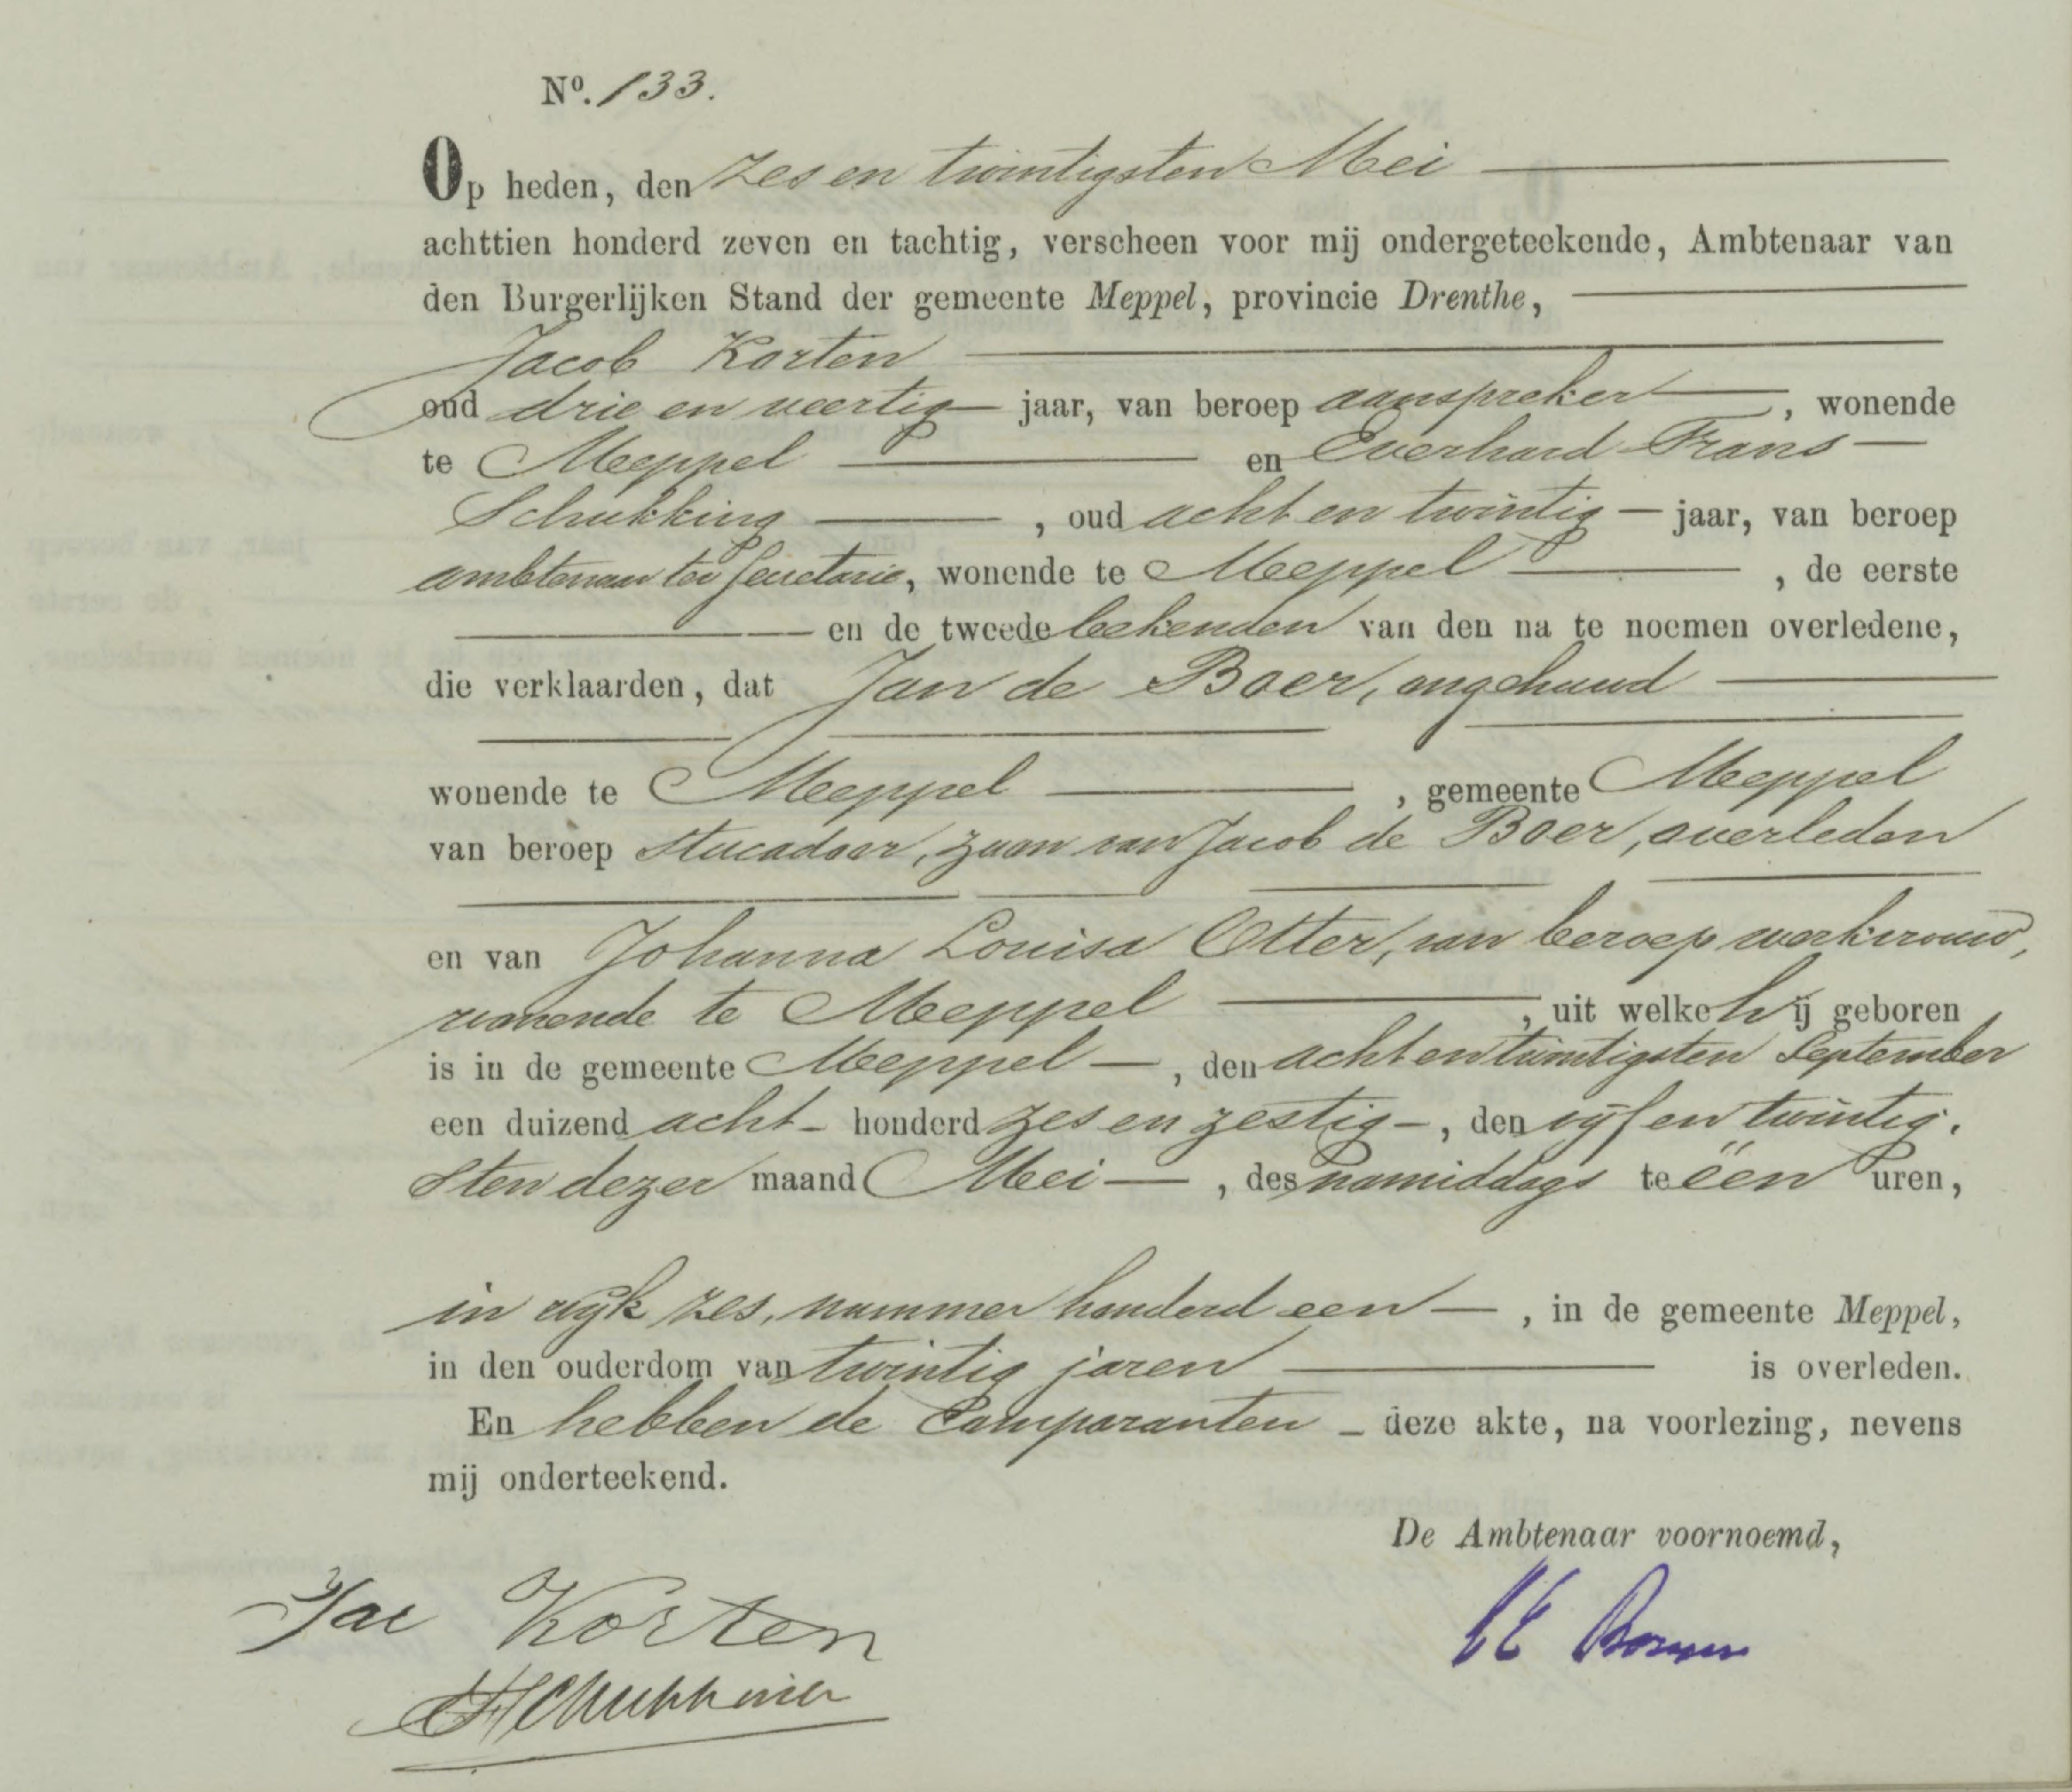 No. 133.
Op heden, den zes en twintigsten Mei
achttien honderd zeven en tachtig, verscheen voor mij ondergeteekende, Ambtenaar van
den Burgerlijken Stand der gemeente Meppel, provincie Drenthe,
Jacob Korten
oud drie en veertig jaar, van beroep aanspreker, wonende
te Meppel en Everhard Frans
Schukking, oud acht en twintig jaar, van beroep
ambtenaar ter secretarie, wonende te Meppel, de eerste
en de tweede bekenden van den na te noemen overledene,
die verklaarden, dat Jan de Boer, ongehuwd
wonende te Meppel, gemeente Meppel
van beroep stucadoor, zoon van Jacob de Boer, overleden
en van Johanna Louisa Otter, van beroep werkvrouw,
wonende te Meppel, uit welke hij geboren
is in de gemeente Meppel, den acht en twintigsten September
een duizend acht honderd zes en zestig, den vijf en twintig-
sten dezer maand Mei, des namiddags te één uren,
in wijk zes, nummer honderd een, in de gemeente Meppel,
in den ouderdom van twintig jaren is overleden.
En hebben de Comparanten deze akte, na voorlezing, nevens
mij onderteekend.
De Ambtenaar voornoemd,
Jac Korten
EFSchukking